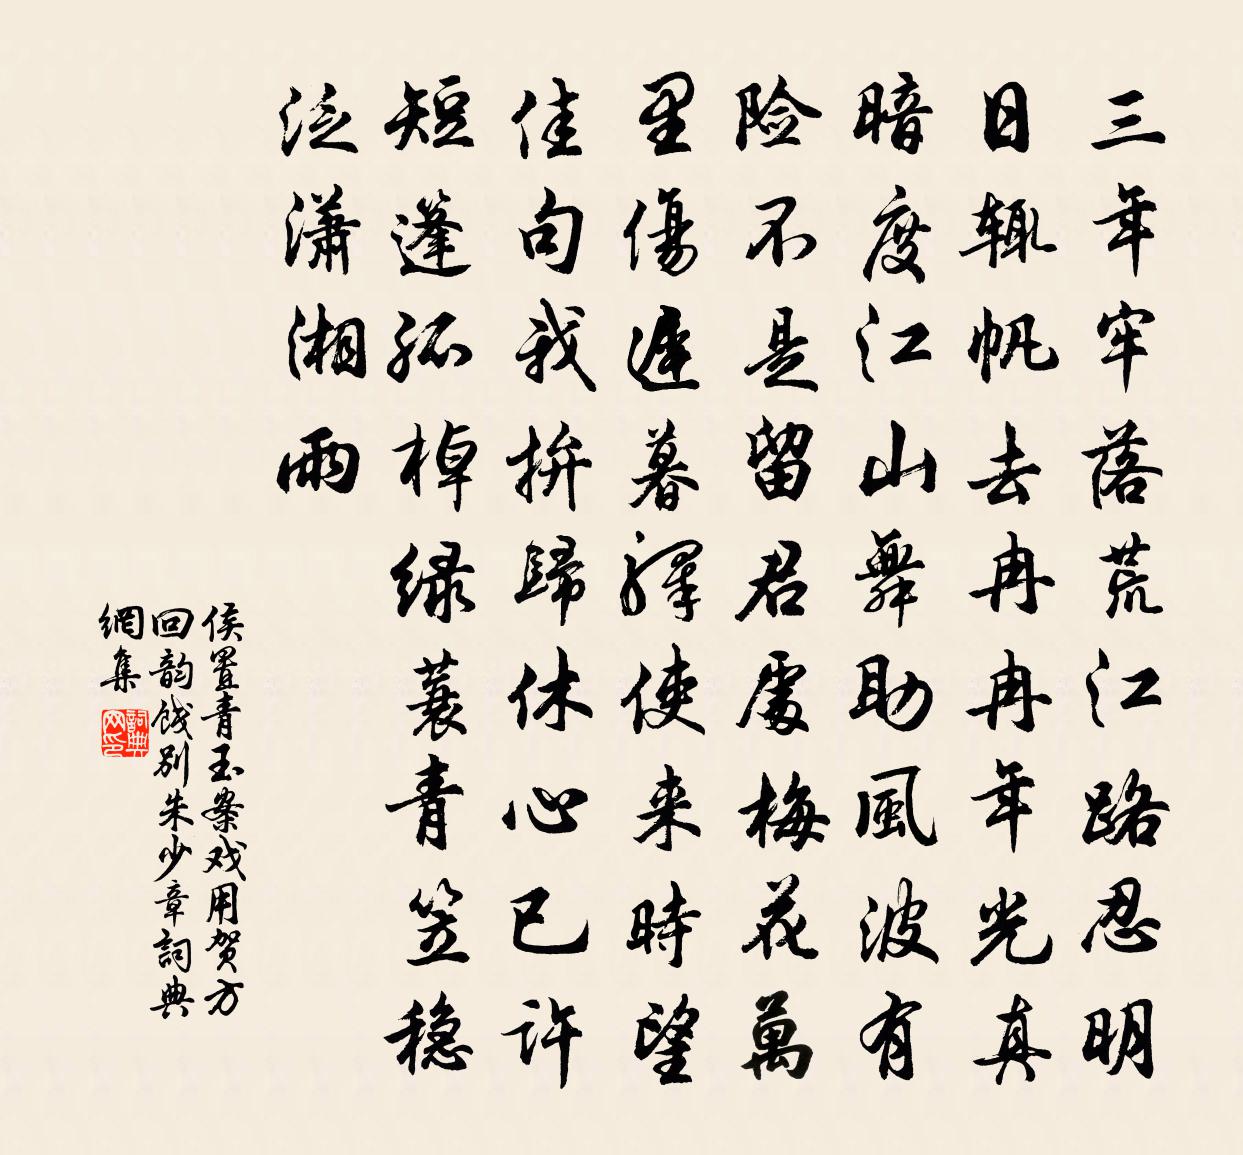 三年牢落荒江路忍明
日輙帆去冉冉年光真
暗度江山舞助風波有
險不是留君處梅花萬
里傷遲暮驛使来時望
佳句我拚歸休心已许
短蓬孤棹绿蓑青笠稳
泛瀟湘雨
侯置青玉案戏用贺方
回韵饯别朱少章詞典
網集
詞典网印